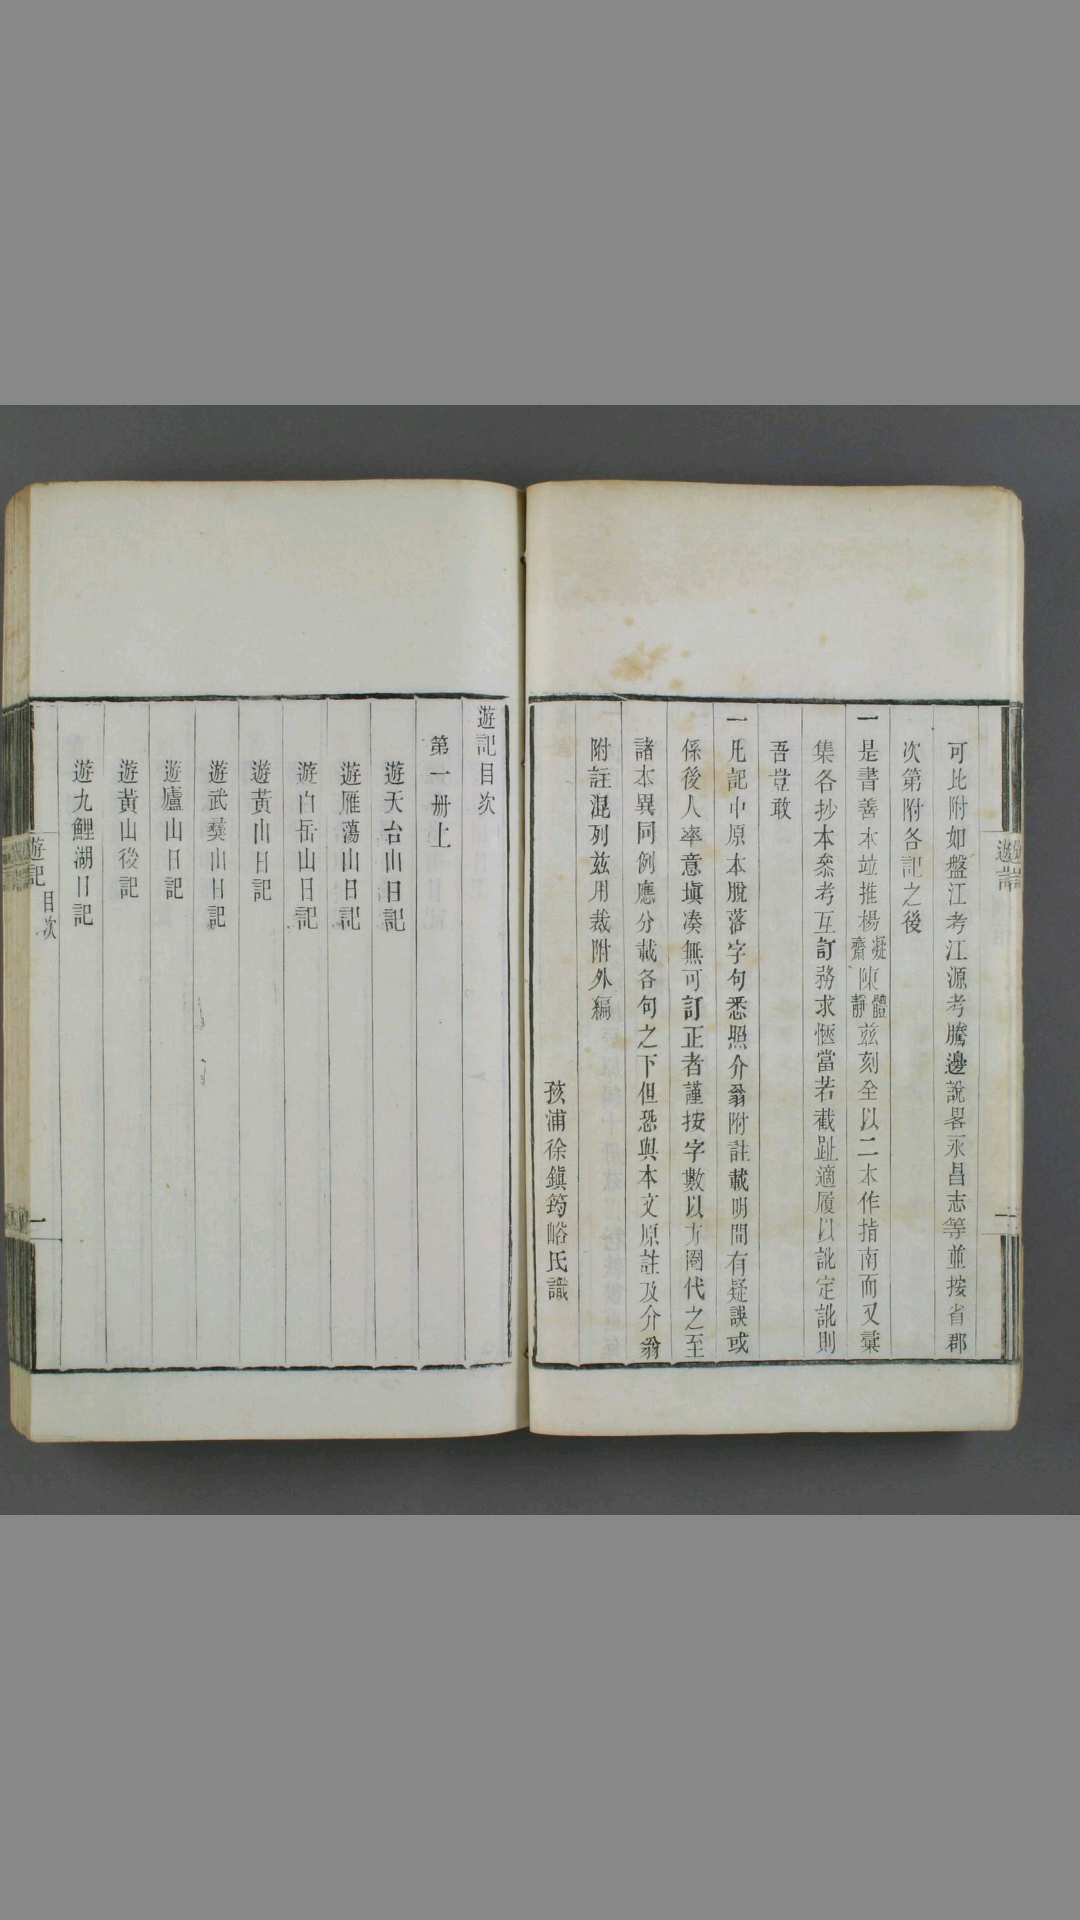 可比附如盤江考江源考騰邊說畧永昌志等並按省郡
次第附各記之後
一是書善本竝推楊凝齋陳體靜兹刻全以二本作指南而又彙
集各抄本叅考互訂務求愜當若截趾適履以訛定訛則
吾豈敢
一凡記中原本脫落字句悉照介翁附註載明間有疑誤或
係後人率意塡凑無可訂正者謹按字數以方圈代之至
諸本異同例應分載各句之下但恐與本文原註及介翁
附註混列兹用裁附外編
孩浦徐鎭筠峪氏識
遊記目次
第一册上
遊天台山日記
遊雁蕩山日記
遊白岳山日記
遊黃山日記
遊武彛山日記
遊廬山日記
遊黃山後記
遊九鯉湖日記
遊記
目次
一